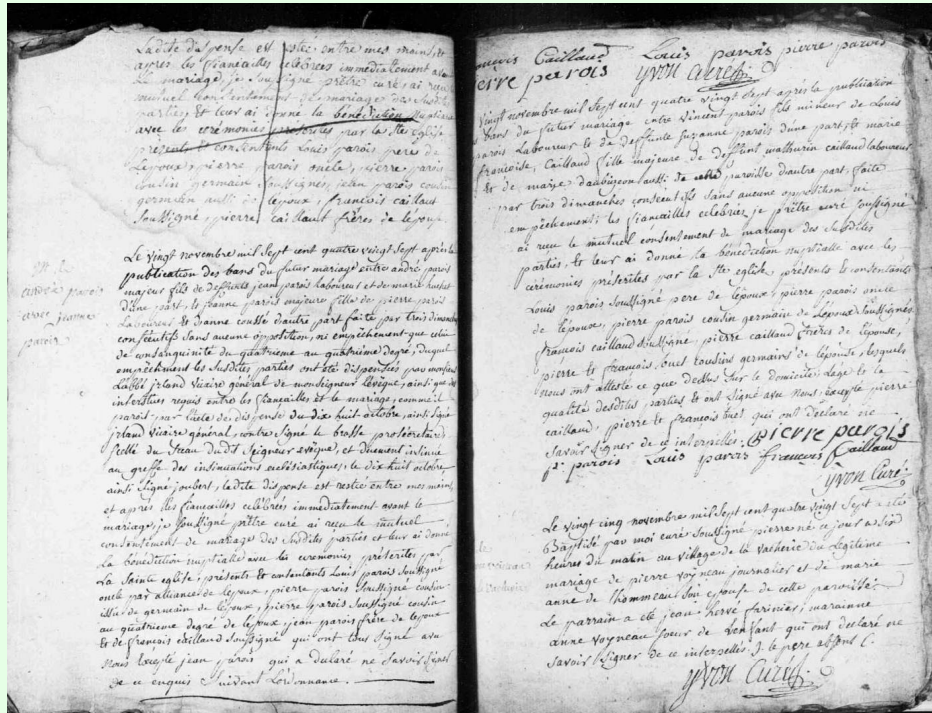 Ladite dispense est restée entre mes mains, et
après les fiançailles célébrées immédiatement avant
le mariage, je soussigné prêtre curé ai reçu
mutuel consentement de mariage des susdites
parties, et leur ai donné la bénédiction nuptiale
avec les cérémonies préscrites par la Ste église
présents et consentants Louis parois pere de
Lépoux, pierre parois oncle, pierre parois
cousin germain soussignés, jean parois cousin
germain aussi de lépoux, françois caillaut
soussigné, pierre caillaut frères de lépouse
Le vingt novembre mil sept cent quatre vingt sept après la
publication des bans du futur mariage entre andré parois
majeur fils de deffunts jean parois laboureur et de marie
d'une part, et jeanne parois majeure fille de pierre parois
Laboureur et d'anne cousse d'autre part faite par trois dimanches
consécutifs sans aucune opposition, ni empêchement que celui
de consanguinité du quatrième au quatrième degré, duquel
empêchement les susdites parties ont été dispensées par monsieur
L'abbé jrland vicaire général de monseigneur L'évêque, ainsi que des
interstices requis entre les fiançailles et le mariage, comme il
paroit par l'acte de dispense du dix huit octobre, ainsi signé
jrland vicaire général, contre signé le brasse prosécretaire,
scellé du sceau dudit seigneur evêque, et duement insinué
au greffe des insinuations ecclésiastiques, le dix huit octobre
ainsi signé joubert, ladite dispense est restée entre mes mains,
et après les fiançailles célébrées immédiatement avant le
mariage, je soussigné prêtre curé ai reçu le mutuel
consentement de mariage des susdites parties et leur ai donné
La bénédiction nuptiale avec les cérémonies préscrites par
La sainte eglise, présents et contentants Louis parois soussigné
oncle par alliance de lépoux, pierre parois soussigné cousin
issu de germain de lépoux, pierre parois soussigné cousin
au quatrieme degré de lépoux, jean parois frère de lépoux
et de françois caillaud soussigné qui ont tous signé avec
nous Excepté jean parois qui a declaré ne savoir signer
de ce enquis suivant L'ordonnance.
andré parois
avec jeanne
parois
françois Caillaud Louis parois pierre parois
pierre parois yvon curé
vingt novembre mil sept cent quatre vingt sept après la publication
bans du futur mariage entre vincent parois fils mineur de Louis
parois Laboureur et de deffunte suzanne parois d'une part, et marie
françoise, Caillaud fille majeure de deffunt mathurin caillaud laboureur
et de marie daubigeon aussi de cette paroisse d'autre part, faite
par trois dimanches consécutifs sans aucune opposition ni
empêchement: les fiançailles célébrées, je prêtre curé soussigné
ai reçu le mutuel consentement de mariage des susdites
parties, et leur ai donné la bénédiction nuptialle avec les
cérémonies préscrites par la Ste eglise, présents et consentants
Louis parois soussigné pere de lépoux, pierre parois oncle
de lépoux, pierre parois cousin germain de lépoux soussignés,
françois caillaud soussigné, pierre caillaud frères de lépouse,
pierre et françois cousins germains de lépouse, lesquels
nous ont attesté ce que dessus sur le domicile, l'age et la
qualité desdites parties et ont signé avec nous, excepté pierre
caillaud, pierre et françois qui ont déclaré ne
savoir signer de ce interpellés. pierre parois
pr. parois Louis parois françois Caillaud
yvon Curé
Le vingt cinq novembre mil sept cent quatre vingt sept a été
Baptisé par moi curé soussigné pierre né ce jour a
heures du matin au village de la vacherie du legitime
mariage de pierre voyneau journalier et de marie
anne de l'hommeau son epouse de cette paroisse.
Le parrain a été jean hervé farinier, marainne
anne voyneau soeur de L'enfant qui ont déclaré ne
savoir signer de ce interpellés. le pere absent
yvon Curé